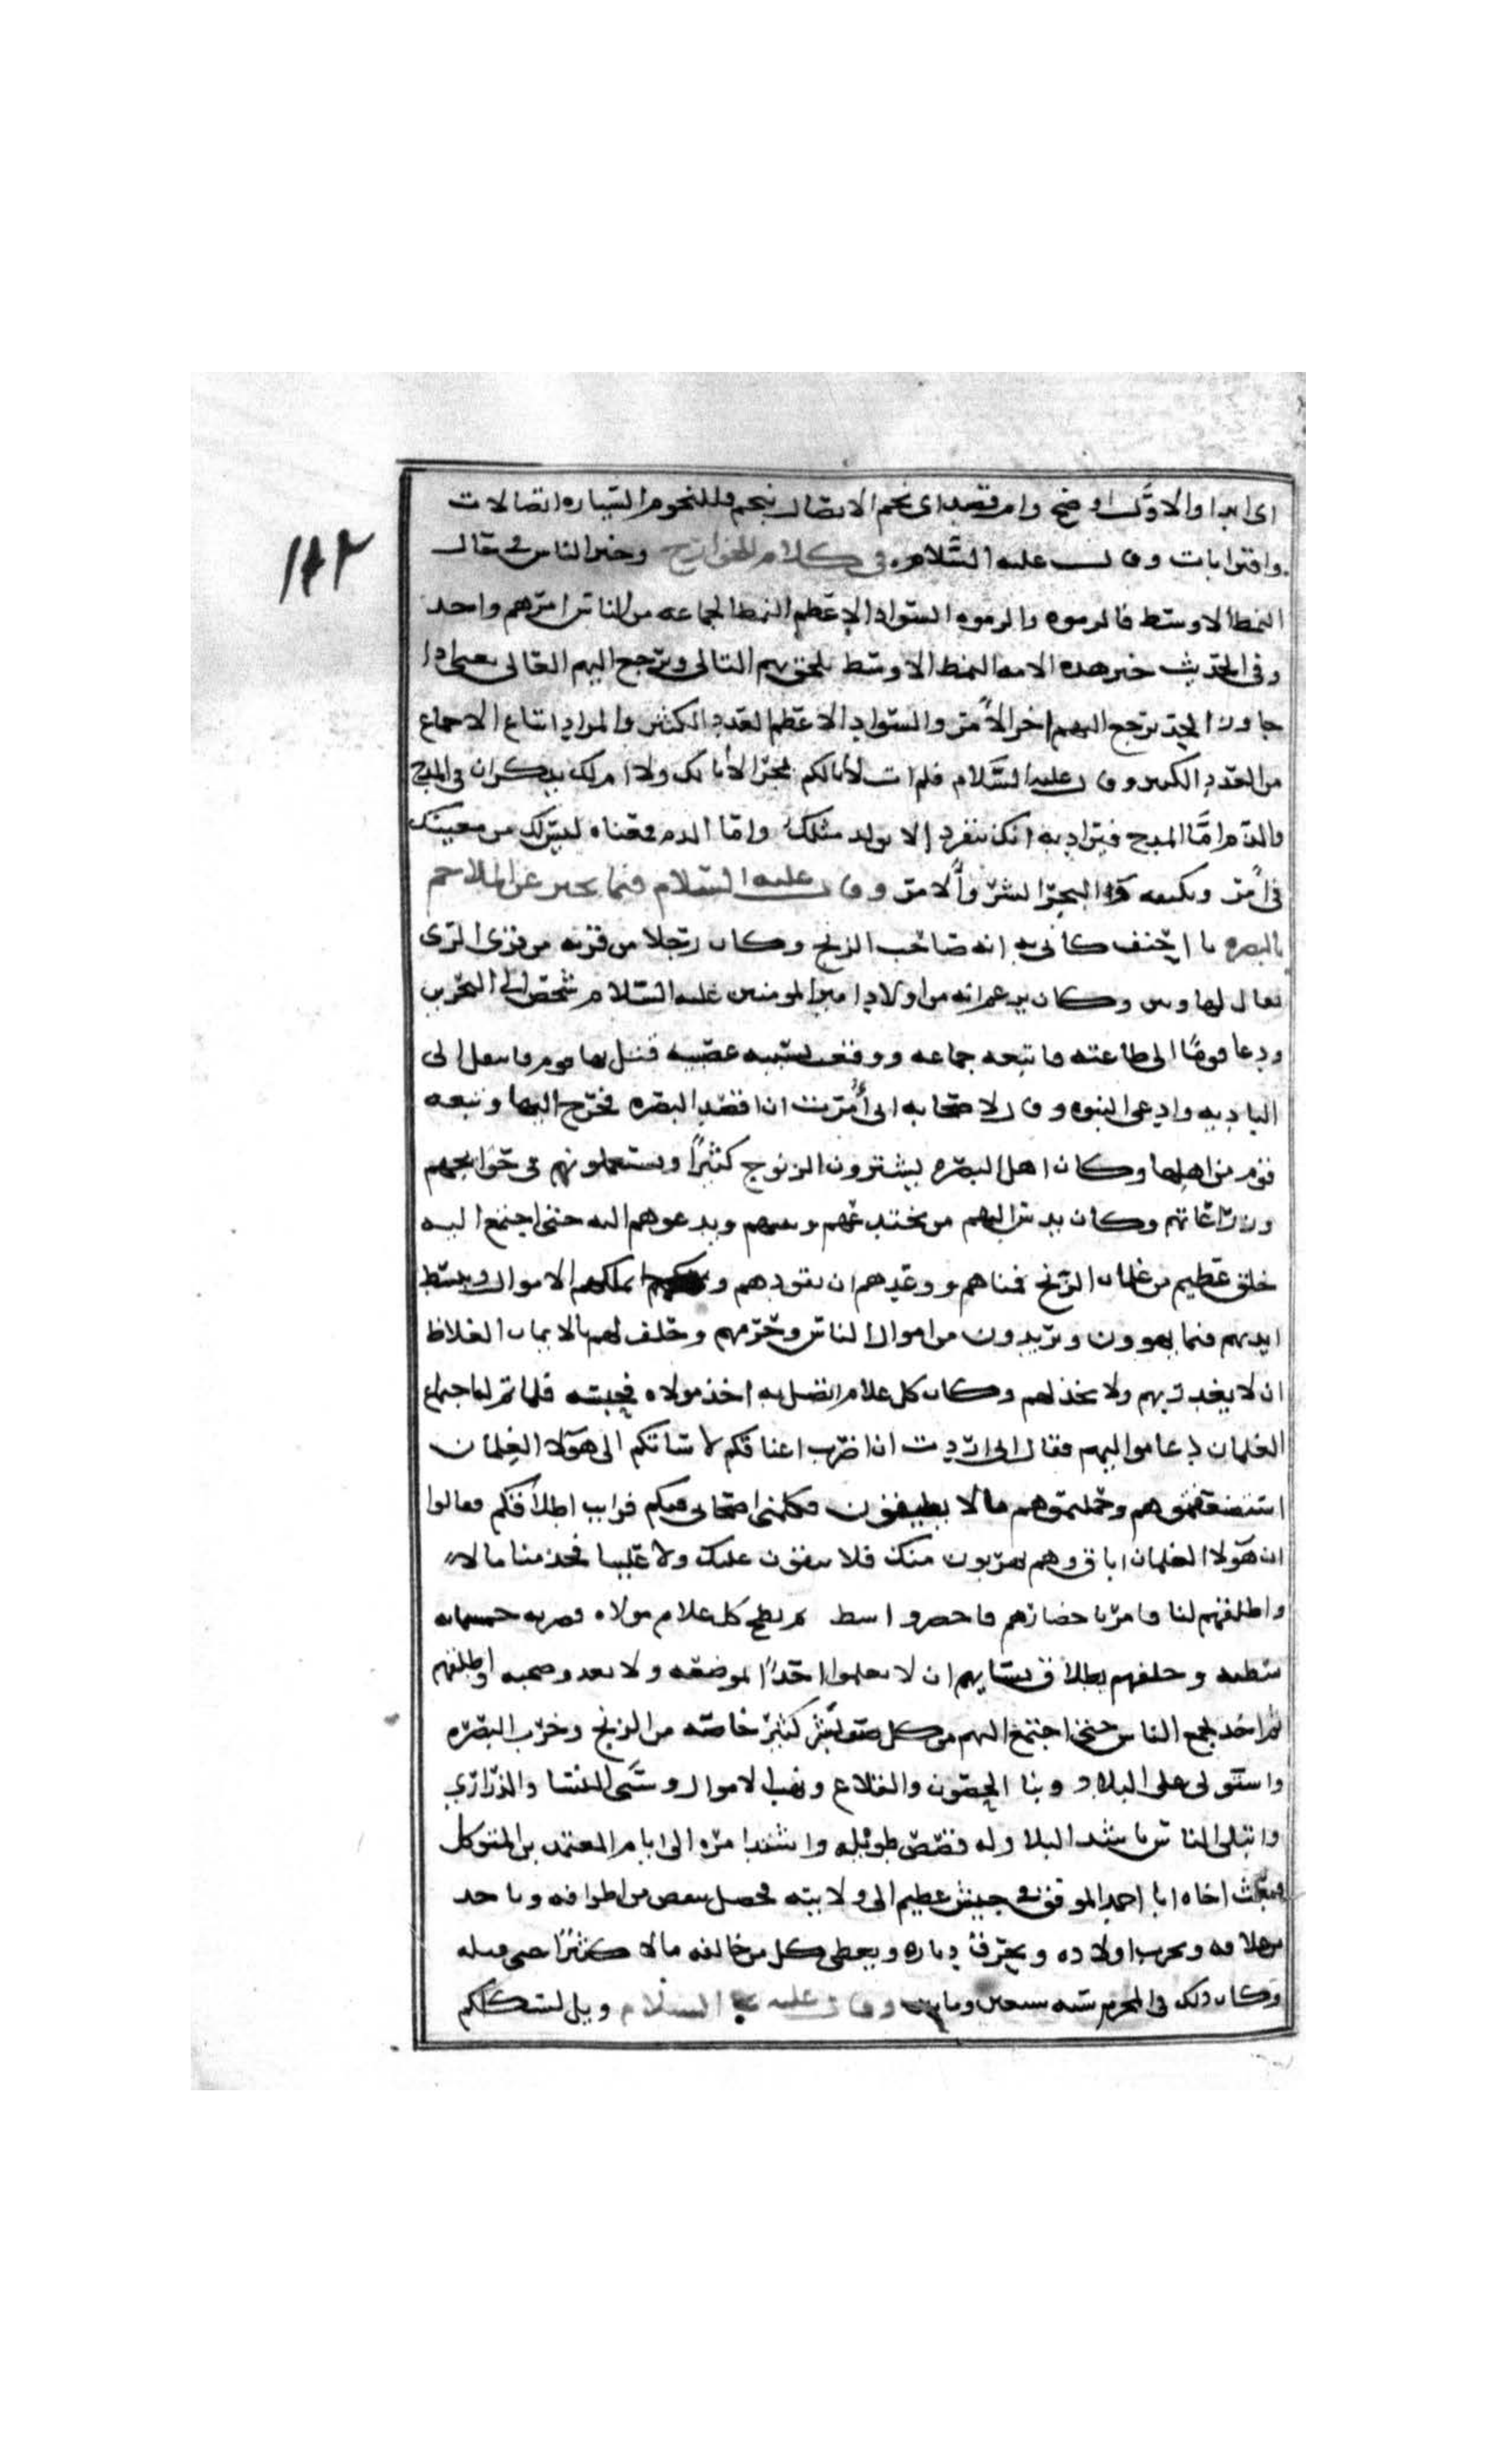 اى ابدا والاول اوضح وام قصد اى نجم الاتصال بنجم وللنجوم السياره اتصالات
واقترابات وقال عليه السلام فى كلام للخوارج وخير الناس فى حالا
النمط الاوسط فالزموه والزموا السواد الاعظم النمط الجماعه من الناس امرهم واحد
وفى الحديث خير هذه الامه النمط الاوسط يلحق بهم التالى ويرجع اليهم الغالى يعنى اذا
جاوز الحد يرجع اليهم اخر الامر والسواد الاعظم العدد الكثير والمراد اتباع الاجماع
من العدد الكثير وقال عليه السلام فلم ات لا ابا لكم بجرا لا ابا لك ولا ام لك يذكران فى المدح
والذم اما المدح فيراد به انك تنفرد لا يولد مثلك واما الذم فمعناه ليس لك من يعينك
فى امر ويكنفه والبجر الشر والامر وقال عليه السلام فيما يخبر عن الملاحم
بالبصره يا احنف كانى به انه صاحب الزنج وكان رجلا من قريه من قرى الرى
يقال لها وكان يزعم انه من اولاد امير المومنين عليه السلام شخص الى البحرين
ودعا قوما الى طاعته فاتبعه جماعه ووقعت بسببه عصبيه قتل بها قوم فانتقل الى
الباديه وادعى النبوه وقال لاصحابه انى امرت ان اقصد البصره فخرج اليها وتبعه
قوم من اهلها وكان اهل البصره يشترون الزنوج كثيرا ويستعملونهم فى حوايجهم
وزراعاتهم وكان يدس اليهم من يخدعهم ويمنيهم ويدعوهم اليه حتى اجتمع اليه
خلق عظيم من غلمان الزنج فمناهم ووعدهم ان يقودهم ويملكهم الاموال ويبسط
ايديهم فيما يهوون ويريدون من اموال الناس وحرمهم وحلف لهم بالايمان الغلاظ
ان لا يغدر بهم ولا يخذلهم وكان كل غلام اتصل به اخذ مولاه فحبسه فلما تم له اجتماع
الغلمان دعا مواليهم فقال انى اردت ان اضرب اعناقكم لاساتكم الى هولا الغلمان
استضعفتموهم وحملتموهم مالا يطيقون فكلمنى اصحابى فيكم فرايت اطلاقكم فقالوا
ان هولا الغلمان اباق وهم يهربون منك فلا يبقون عليك ولا علينا فخذ منا مالا
واطلقهم لنا فامر باحضارهم فاحضروا ثم بطح كل غلام مولاه فضربه خمسمايه
شطبه وحلفهم بطلاق نسايهم ان لا يعلموا احدا بموضعه ولا بعدد صحبه واطلقهم
ثم اخذ يجمع الناس حتى اجتمع اليهم من كل صقع بشر كثير خاصه من الزنج وخرب البصره
واستولى على البلاد وبنا الحصون والقلاع ونهب الاموال وسبى النسا والذرارى
وابتلى الناس باشد البلا وله قصص طويله واشتد امره الى ايام المعتمد بن المتوكل
فبعث اخاه ابا احمد الموفق فى جيش عظيم الى ولايته فحصل ينقص من اطرافه وياخذ
ويحرب اولاده ويحرق دياره ويعطى كل من خالفه مالا كثيرا حتى قتله
وكان ذلك فى المحرم سنه سبعين ومايتين وقال عليه السلام ويل لسكككم
١٨٢